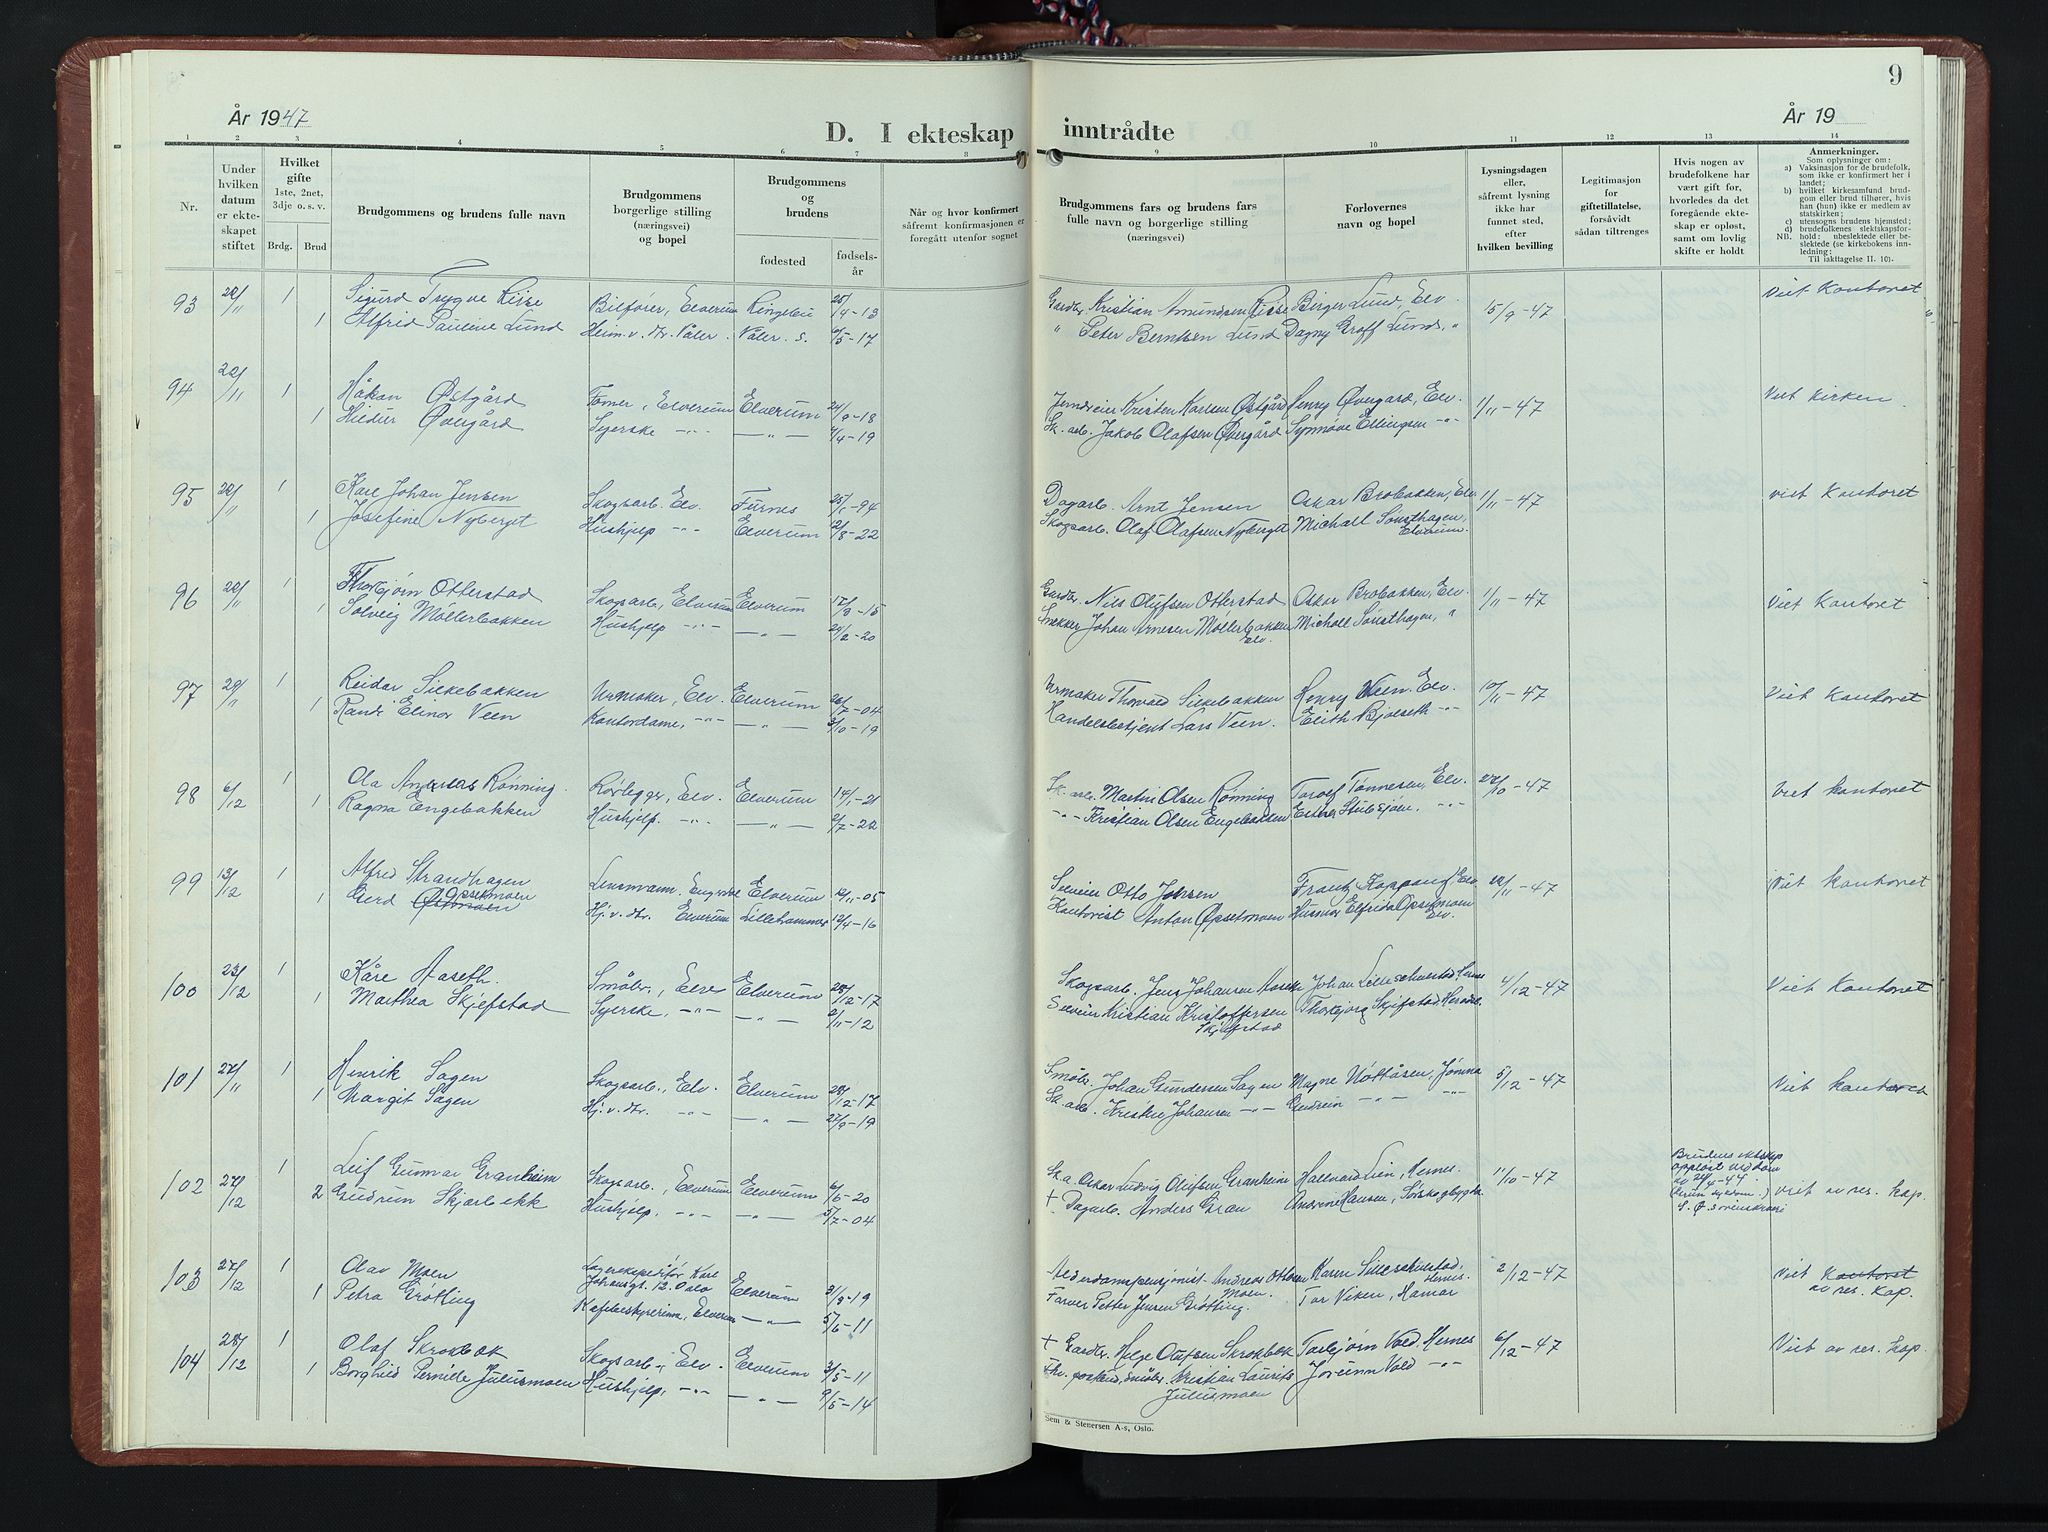 År 1947
D. I ekteskap
1 2 3 4 5 6 7 8
Nr.
Under hvilken datum er ekteskapet stiftet
Hvilket gifte
1ste, 2net. 3dje o. s. v.
Brdg. Brud
Brudgommens og brudens fulle navn
Brudgommens borgerlige stilling (næringsvei) og bopel
Brudgommens og brudens
fødested
fødselsår
Når og hvor konfirmert såfremt konfirmasjonen er foregått utenfor sognet
93 22/11 1 Sigurd Trygve Risse Bilfører, Elverum Ringebu 25/4-13
1 Alfrid Pauline Lund Heim.v. dtr. Våler. Våler. S. 6/5-17
94 22/11 1 Håkan Østgård Tømer, Elverum Elverum 24/9-18
1 Hildur Øvergård Syerske -"- -"- 4/4-19
95 22/11 1 Kåre Johan Jensen Skogsarb. Elv. Furnes 25/1-94
1 Josefine Nyberget Hushjelp -"- Elverum 12/8-22
96 22/11 1 Thorbjørn Otterstad Skogsarb, Elverum Elverum 17/9-15
1 Solveig Møllerbakken Hushjelp -"- -"- 24/2-20
97 29/11 1 Reidar Silkebakken Urmaker, Elv. Elverum 26/7-04
1 Randi Elinor Veen Kontordame, -"- -"- 3/10-19
98 6/12 1 Ola Andreas Rønning Rørlegger, Elv. Elverum 14/1-21
1 Ragna Engebakken Hushjelp. -"- -"- 2/7-22
99 13/12 1 Alfred Strandhagen Lensmann. Elverum 12/11-05
1 Gerd Opsetmoen Hj. v. dtr. Elverum Lillehammer 12/4-16
100 23/12 1 Kåre Aaseth. Småbr., Elv. Elverum 28/12-17
1 Marthea Skjefstad Syerske, -"- -"- 2/11-12
101 27/11 1 Henrik Sagen Skogsarb., Elv. Elverum 28/12-17
1 Margit Sagen Hj. v. dtr. -"- -"- 27/9-19
102 27/12 1 Leif Gunnar Granheim Skogsarb., Elverum Elverum 6/6-20
2 Gudrun Skjærbekk Hushjelp. -"- -"- 5/7-04
103 27/12 1 Olav Moen Lagerekspeditør Karl Johansgt. 12. Oslo Elverum 31/8-19
1 Petra Grøtting Kafebestyrerinne, Elverum -"- 5/6-11
104 28/12 1 Olaf Skrokbæk Skogsarb., Elv. Elverum 3/5-11
1 Borghild Pernille Juliusmoen Hushjelp, -"- -"- 9/5-14
9
År 19
inntrådte
9 10 11 12 13 14
Brudgommens fars og brudens fars fulle navn og borgerlige stilling (næringsvei)
Forlovernes navn og bopel
Lysningsdagen eller, såfremt lysning ikke har funnet sted, efter hvilken bevilling
Legitimasjon for giftetillatelse, forsåvidt sådan tiltrenges
Hvis nogen av brudefolkene har vært gift før, hvorledes da det foregående ekteskap er opløst, samt om lovlig skifte er holdt
Anmerkninger.
Som oplysninger om:
a) Vaksinasjon for de brudefolk, som ikke er konfirmert her i landet;
b) hvilket kirkesamfund brudgom eller brud tilhører, hvis han (hun) ikke er medlem av statskirken;
c) utensogns brudens hjemsted;
d) brudefolkenes slektskapsforhold: ubeslektede eller beslektede (se kirkebokens innledning:
NB.
Til iakttagelse II. 10).
Gardbr. Kristian Amundsen Risse Birger Lund, Elv. 15/9-47 Viet kontoret
" Peter Berntsen Lund Dagny Groff Lund, "
Jordeier Kristen Karlsen Østgård Henry Øvergård, Elv. 1/11-47 Viet kirken.
Sk. arb. Jakob Olafsen Øvergård Synnøve Ellingsen -"-
Dagarb. Arnt Jensen Oskar Brobakken, Elv. 1/11-47 viet kontoret
Skogsarb. Olaf Olafsen Nyberget Michall Sønsthagen, Elverum.
Gardbr. Nils Olufsen Otterstad Oskar Brobakken, Elv. 1/11-47 Viet kontoret
Snekker Johan Arnesen Møllerbakken Elv. Michall Sønsthagen, "
Urmaker Thorvald Silkebakken Henry Veen. Elv. 10/11-47 Viet kontoret
Handelsbetjent Lars Veen. Edith Bjølseth -"-
Sk. arb. Martin Olsen Rønning Torolf Tønnesen, Elv. 22/10-47 Viet kontoret
-"- Kristian Olsen Engebakken Ester Stubsjøen, -"-
Seleier Otto Johsen Frantz Koppang, Elv. 22/11-47 Viet kontoret
Kontorist Anton Opsetmoen Husmor Elfrida Opsetmoen Elv.
Skogsarb. Jens Johansen Aaseth Johan Lilleschulstad, Hernes 4/12-47 Viet kontoret
Seleier Kristian Kristoffersen Skjefstad Thorbjørg Skjefstad,
Småbr. Johan Gundersen Sagen Magne Nøttåsen, Jømna 5/12-47 Viet kontoret
Sk. arb. Kristen Johansen -"- Gudrun -"- -"-
Sk. a. Oskar Ludvig Olufsen Granheim Hallvard Lien, Hernes. 11/10-47 Brudens ektskap oppløst ved dom av 24/4-44. S. Ø. sorenskriveri viet av res. kap.
+ Dagarb. Anders Græn Andrine Hansen, Sørskogbygda
Alderdomspensjonist Andreas Ottosen Moen. Karen Lilleschulstad, Hernes. 2/12-47 Viet kontoret av res. kap.
Farver Petter Jensen Grøtting. Tor Viken, Hamar
+ Gardbr. Helge Olufsen Skrokbæk Torbjørn Vold, Hernes 6/12-47 Viet av res. kap.
Småbr. Kristian Laurits Juliusmoen Jorunn Vold -"-
Sem & Stenersen A-s, Oslo.